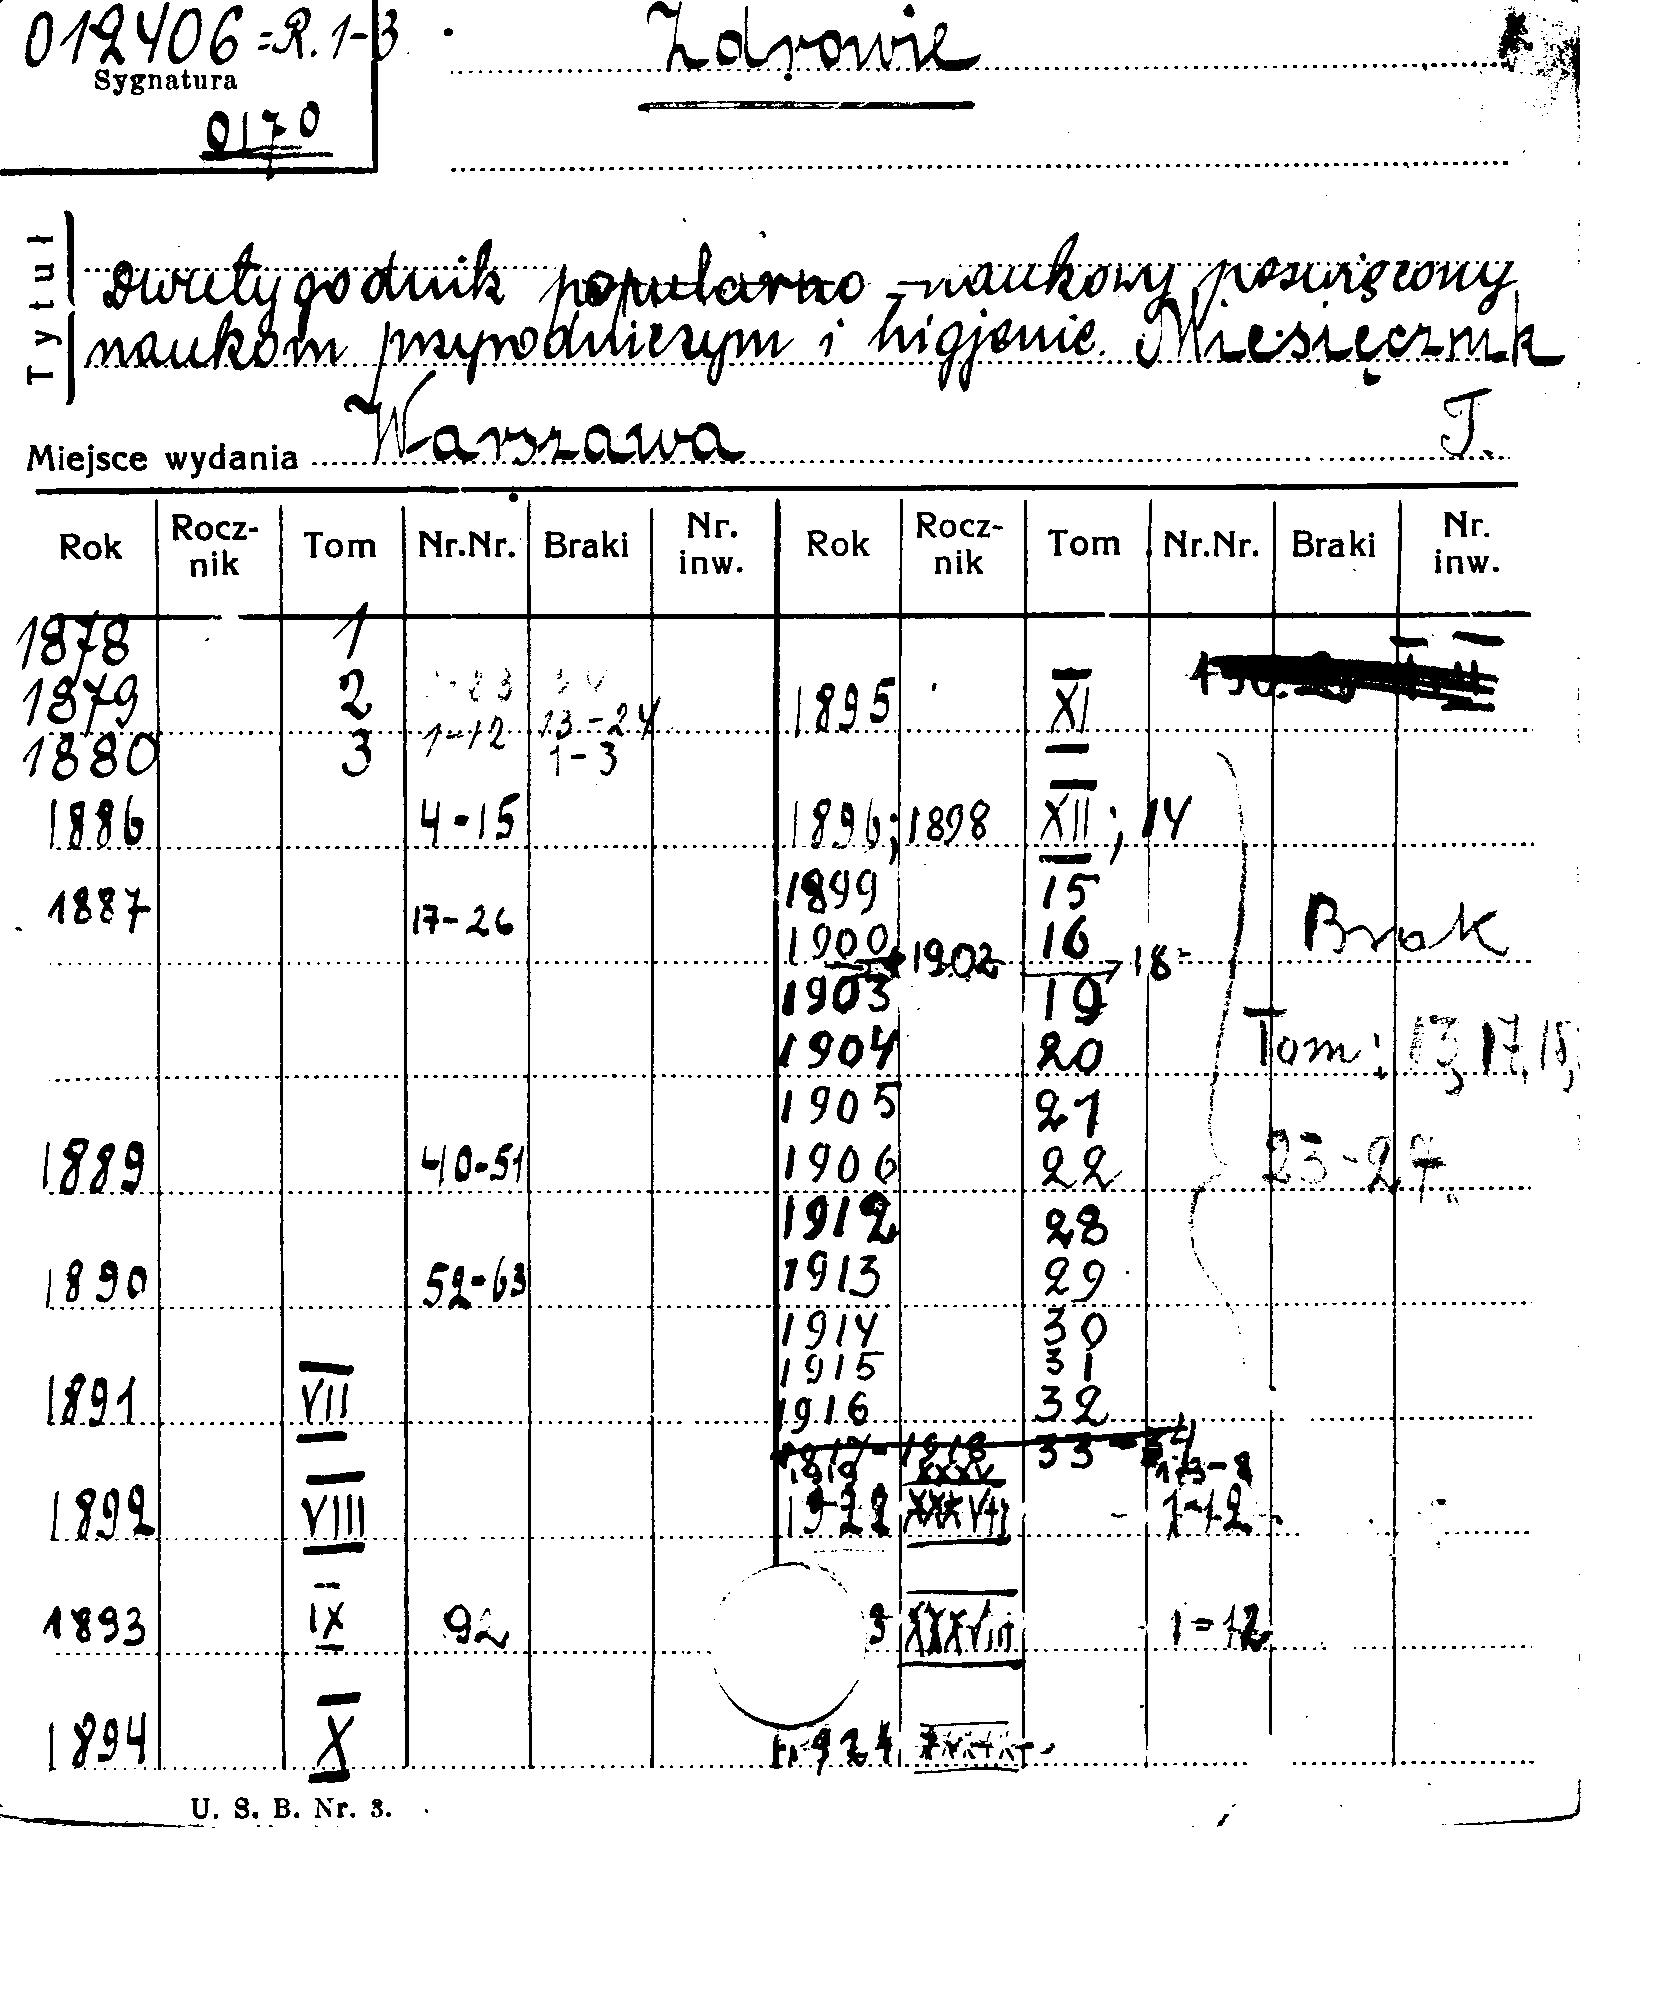 012406 = R. 1-3
Sygnatura
0170
Zdrowie
Tytuł
Dwutygodnik popularno-naukowy poswięcony
naukom przyrodniczym i higjenie. Miesięcznik
Miejsce wydania Warszawa T.
Rok Rocz-nik Tom Nr.Nr. Braki Nr. inw. Rok Rocz-nik Tom Nr.Nr. Braki Nr. inw.
1878 1
1879 2
1880 3 1-12 13-24
1-3
1886 4-15
1887 17-26
1889 40-51
1890 52-63
1891 VII
1892 VIII
1893 IX 92
1894 X
1895 XI
1896; 1898 XII; 14
1899 15
1900 1902 16 18
1903 19
1904 20
1905 21
1906 22
1912 28
1913 29
1914 30
1915 31
1916 32
1917-1918 33-34
1919 XXXV
1922 XXXVII 1-12
3 XXXVIII 1-12
1924
Brak
Tom: 13, 17, 18,
23-27
U. S. B. Nr. 3.